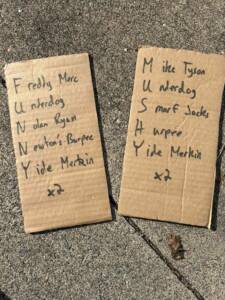 Freddy Merc
Underdog
Nolan Ryan
Newton's Burpee
Yide Merkin
x2
Mike Tyson
Underdog
Smurf Jacks
Hurpee
Yide Merkin
x2